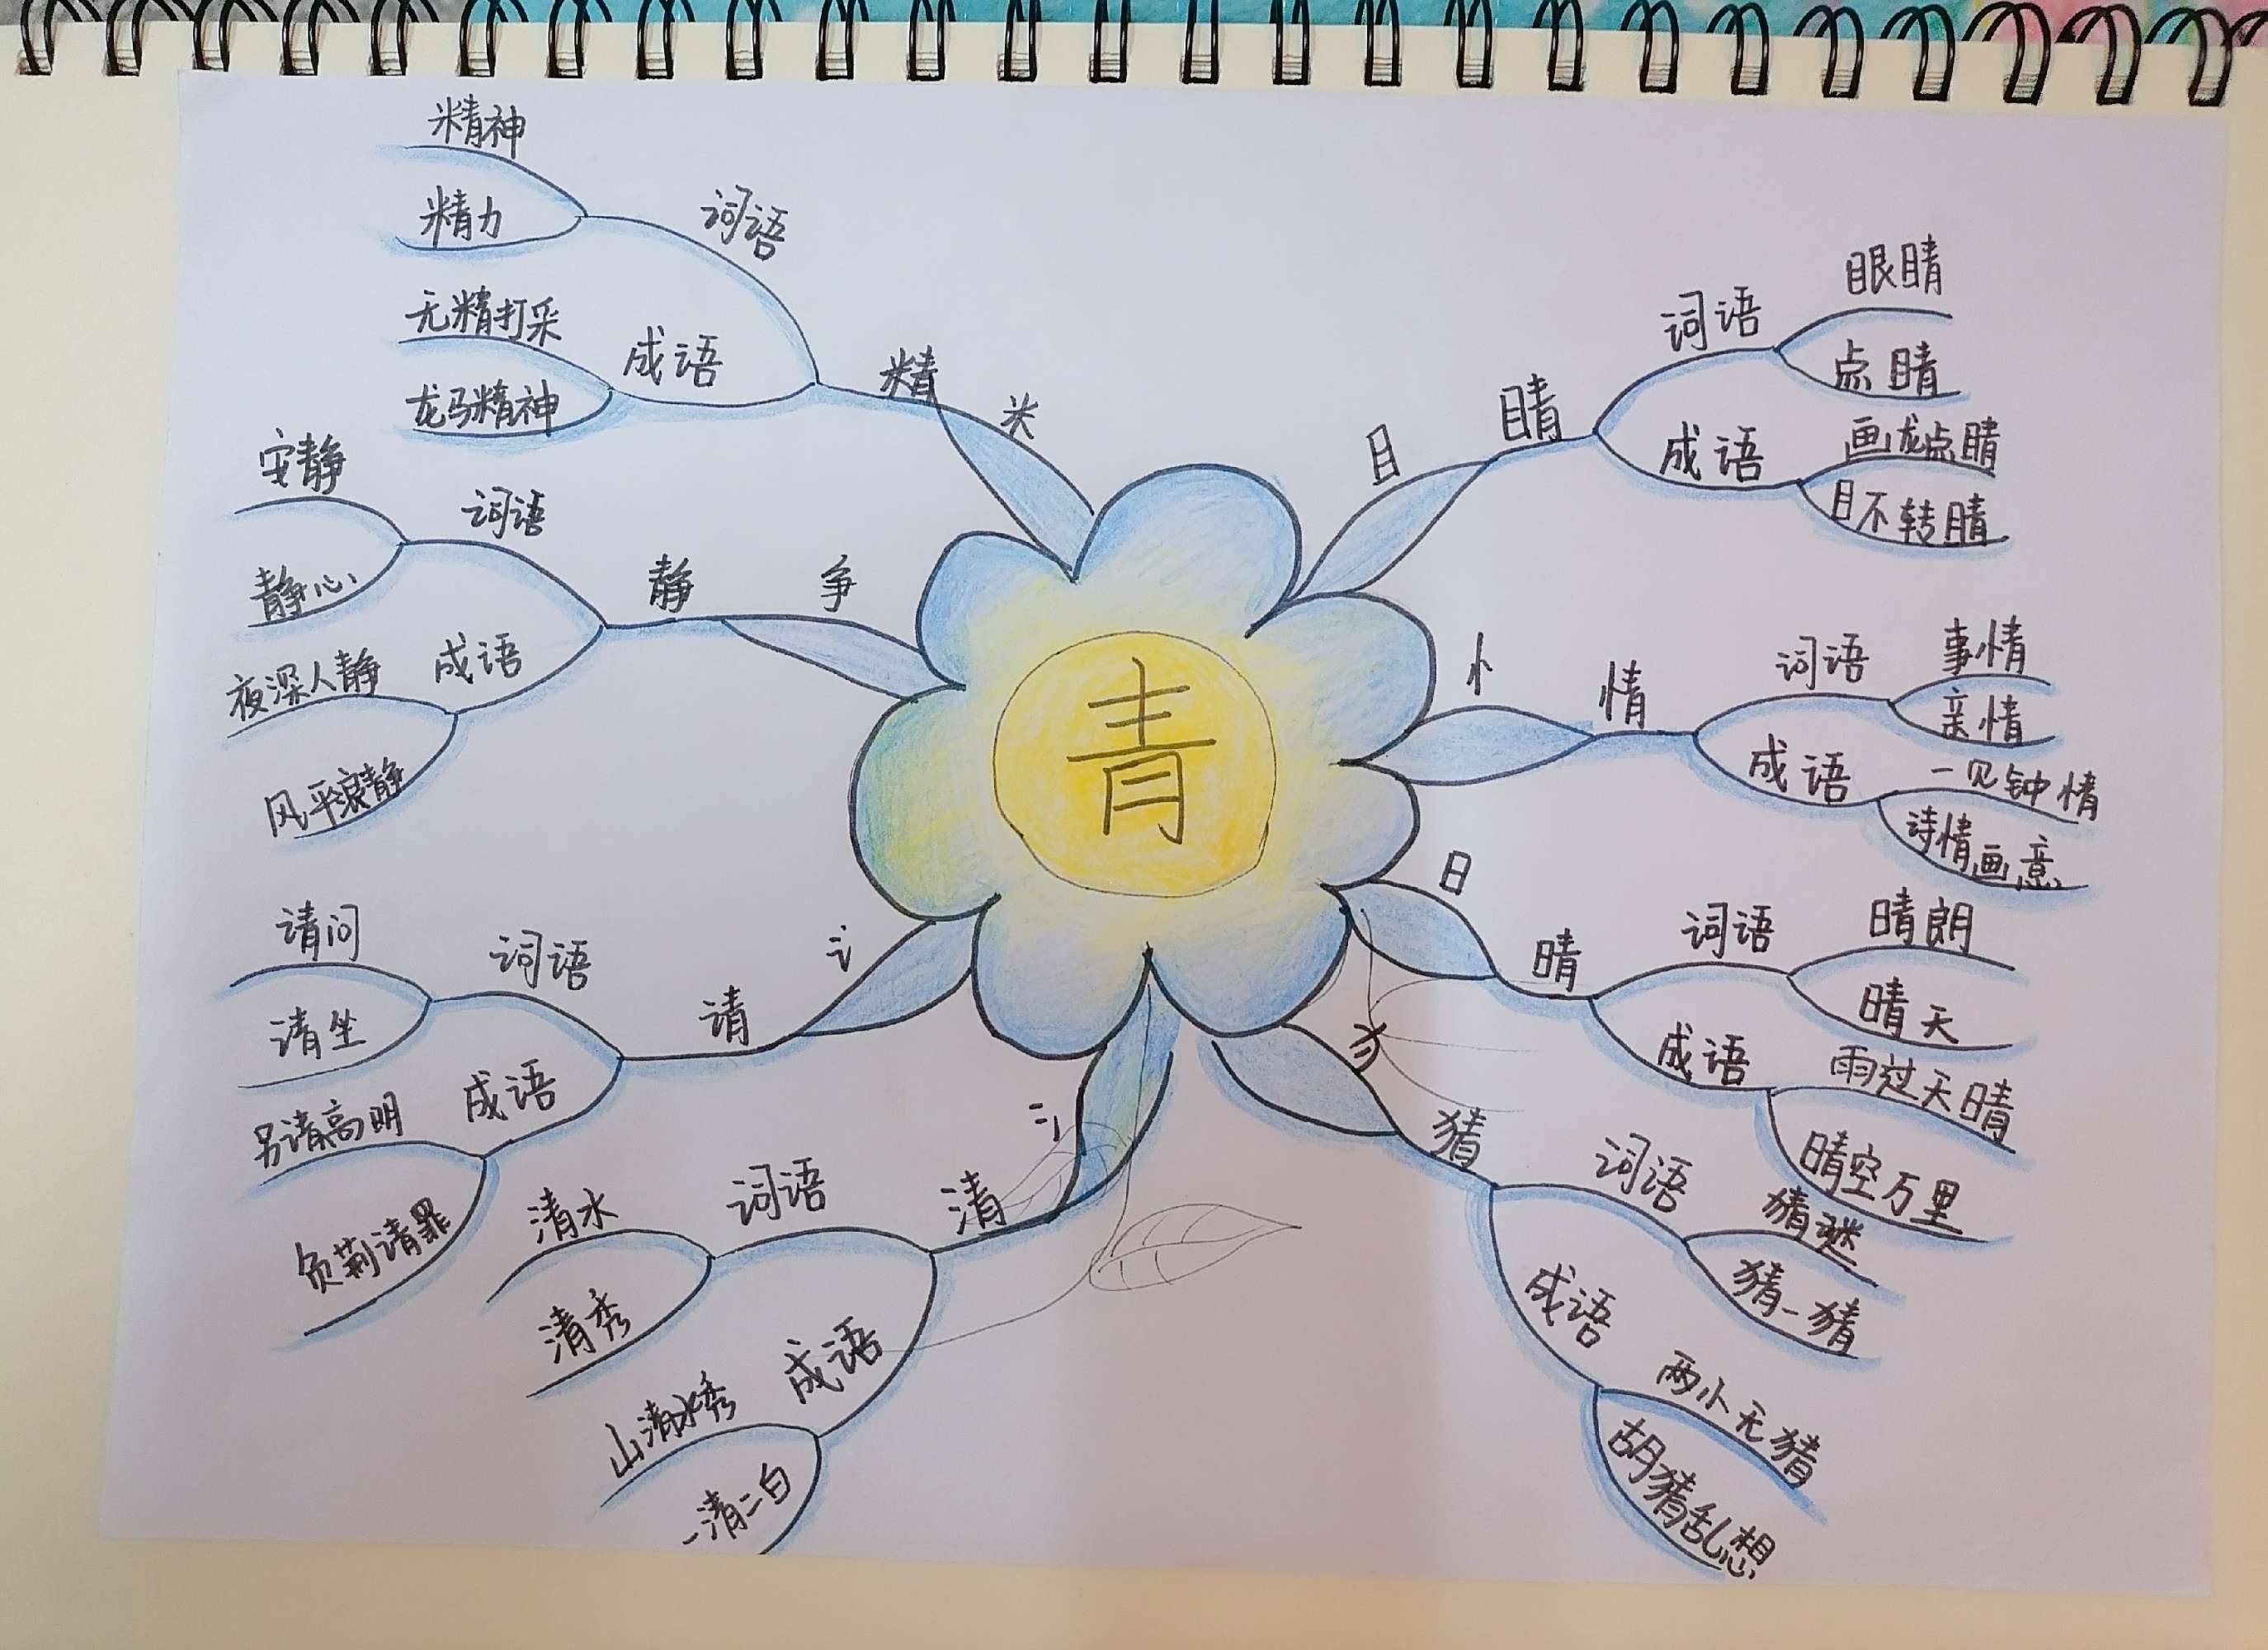 青
目
睛
词语
眼睛
点睛
成语
画龙点睛
目不转睛
忄
情
词语
事情
亲情
成语
一见钟情
诗情画意
日
晴
词语
晴朗
晴天
成语
雨过天晴
晴空万里
犭
猜
词语
猜谜
猜一猜
成语
两小无猜
胡猜乱想
氵
清
词语
清水
清秀
成语
山清水秀
一清二白
讠
请
词语
请问
请坐
成语
另请高明
负荆请罪
争
静
词语
安静
静心
成语
夜深人静
风平浪静
米
精
词语
精神
精力
成语
无精打采
龙马精神